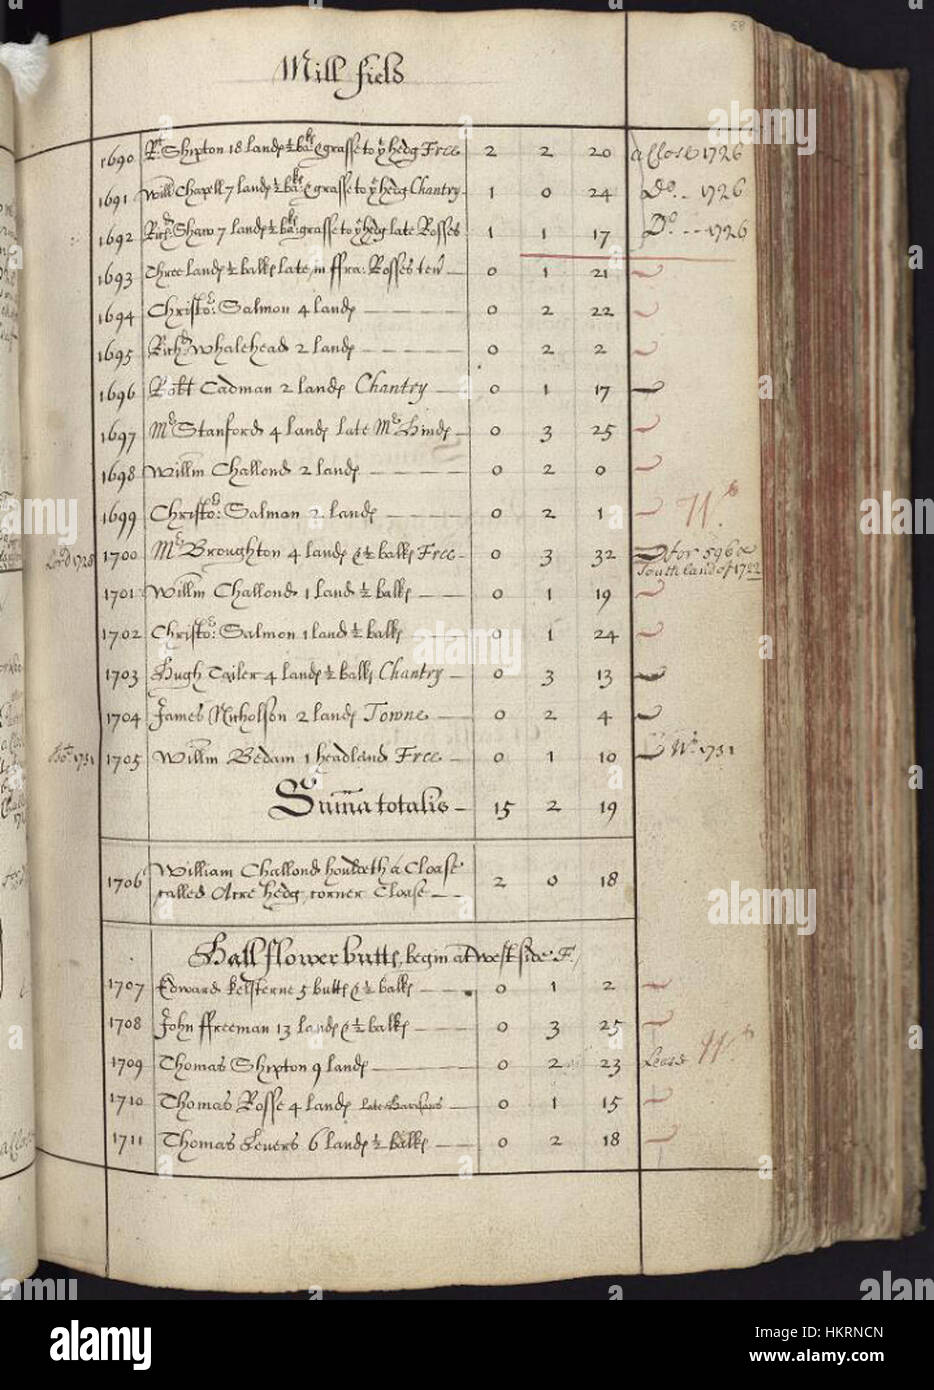 58
Mill field
1690 Rt Shipton 18 lands ½ balke & grasse to ye hedg Free 2 2 20 a Close 1726
1691 Will Chapell 7 lands ½ balke & grasse to ye hedg Chantry 1 0 24 Do. 1726
1692 Richd Shaw 7 lands ½ balke grasse to ye hedg late Rosses 1 1 17 Do. 1726
1693 Three lands ½ balks late in ffra: Rosses ten 0 1 21
1694 Christo: Salmon 4 lands 0 2 22
1695 Richd Whalehead 2 lands 0 2 2
1696 Robt Cadman 2 lands Chantry 0 1 17
1697 Mr Stanford 4 lands late Mr Hinds 0 3 25
1698 Willm Challond 2 lands 0 2 0
1699 Christo: Salman 2 lands 0 2 1
Lord 1728 1700 Mr Broughton 4 lands & ½ balks Free 0 3 32 for 596 &
South land of 1722
1701 Willm Challond 1 land ½ balks 0 1 19
1702 Christo: Salmon 1 land ½ balks 0 1 24
1703 Hugh Tailer 4 lands ½ balks Chantry 0 3 13
1704 James Nicholson 2 lands Towne 0 2 4
1731 1705 Willm Bedam 1 headland Free 0 1 10 1731
Summa totalis 15 2 19
1706 William Challond houldeth a Cloase
called Acre hedg corner Cloase 2 0 18
Hallflower butts, begin at west side F.
1707 Edward Kelsterne 5 butts & ½ balks 0 1 2
1708 John ffreeman 13 lands & ½ balks 0 3 25
1709 Thomas Shipton 9 lands 0 2 23
1710 Thomas Rosse 4 lands late 0 1 15
1711 Thomas Levers 6 lands ½ balks 0 2 18
alamy
alamy
Image ID: HKRNCN
www.alamy.com